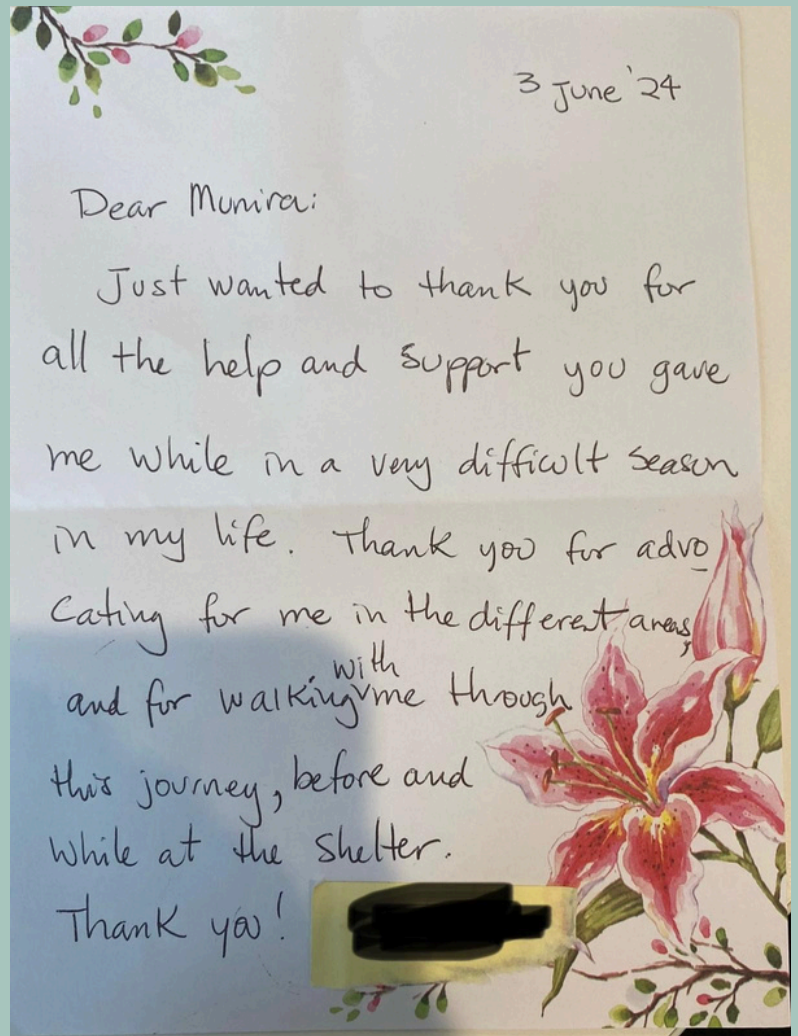 3 June '24
Dear Munira:
Just wanted to thank you for
all the help and support you gave
me while in a very difficult season
in my life. Thank you for advo
cating for me in the different areas,
and for walking with me through
this journey, before and
while at the shelter.
Thank you!